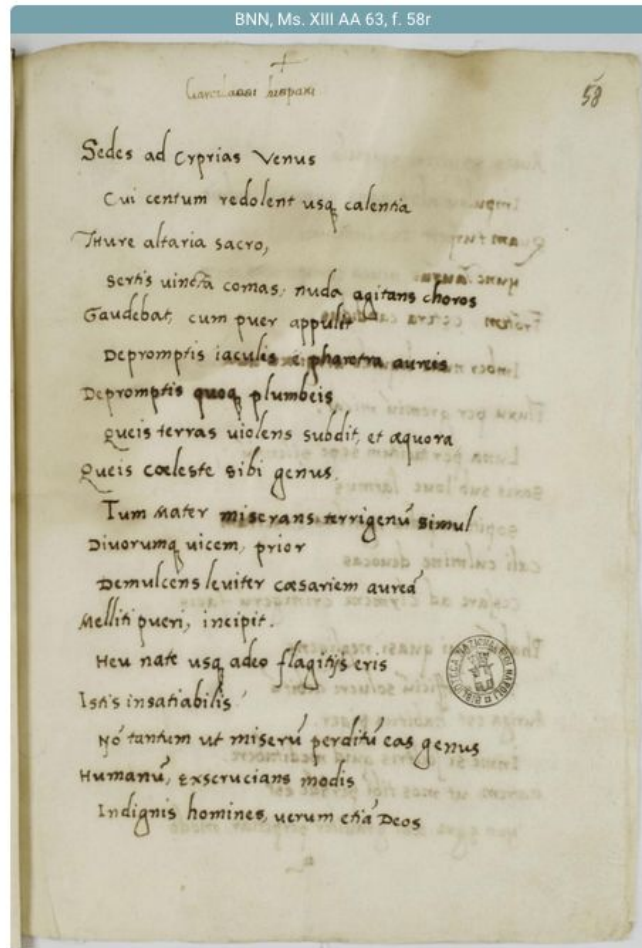 BNN, Ms. XIII AA 63, f. 58r
Garcilassi hispani
58
Sedes ad Cyprias Venus
Cui centum redolent usq calentia
Thure altaria sacro,
Sertis uincta comas, nuda agitans choros
Gaudebat, cum puer appulit
Depromptis iaculis è pharetra aureis
Depromptis quoq plumbeis
Queis terras uiolens subdit, et aequora
Queis coeleste sibi genus.
Tum Mater miserans terrigenū simul
Diuorumq uicem, prior
Demulcens leuiter caesariem aureā
Melliti pueri, incipit.
Heu nate usq adeo flagitijs eris
Istis insatiabilis?
Nō tantum ut miserū perditū eas genus
Humanū, exscrucians modis
Indignis homines, uerum etiā Deos